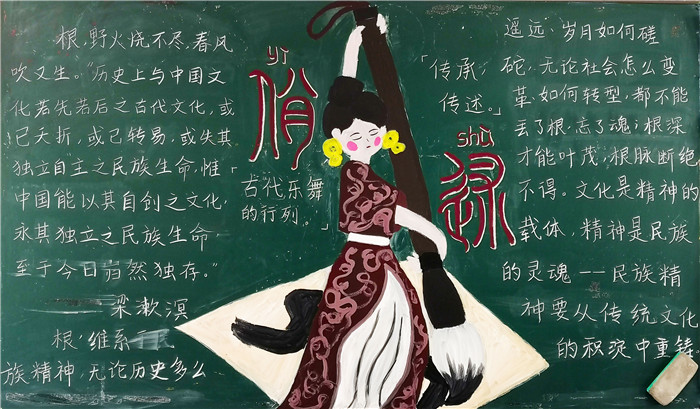 根,野火烧不尽,春风
吹又生。"历史上与中国文
化若先若后之古代文化,或
已夭折,或已转易,或失其
独立自主之民族生命,惟
中国能以其自创之文化,
永其独立之民族生命,
至于今日岿然独存。"
——梁漱溟
根,维系
族精神,无论历史多么
yì
佾
古代乐舞
的行列。」
「传承;
传述。」
shù
述
遥远,岁月如何磋
砣,无论社会怎么变
革,如何转型,都不能
丢了根,忘了魂;根深
才能叶茂,根脉断绝
不得。文化是精神的
载体,精神是民族
的灵魂——民族精
神要从传统文化
的积淀中重铸